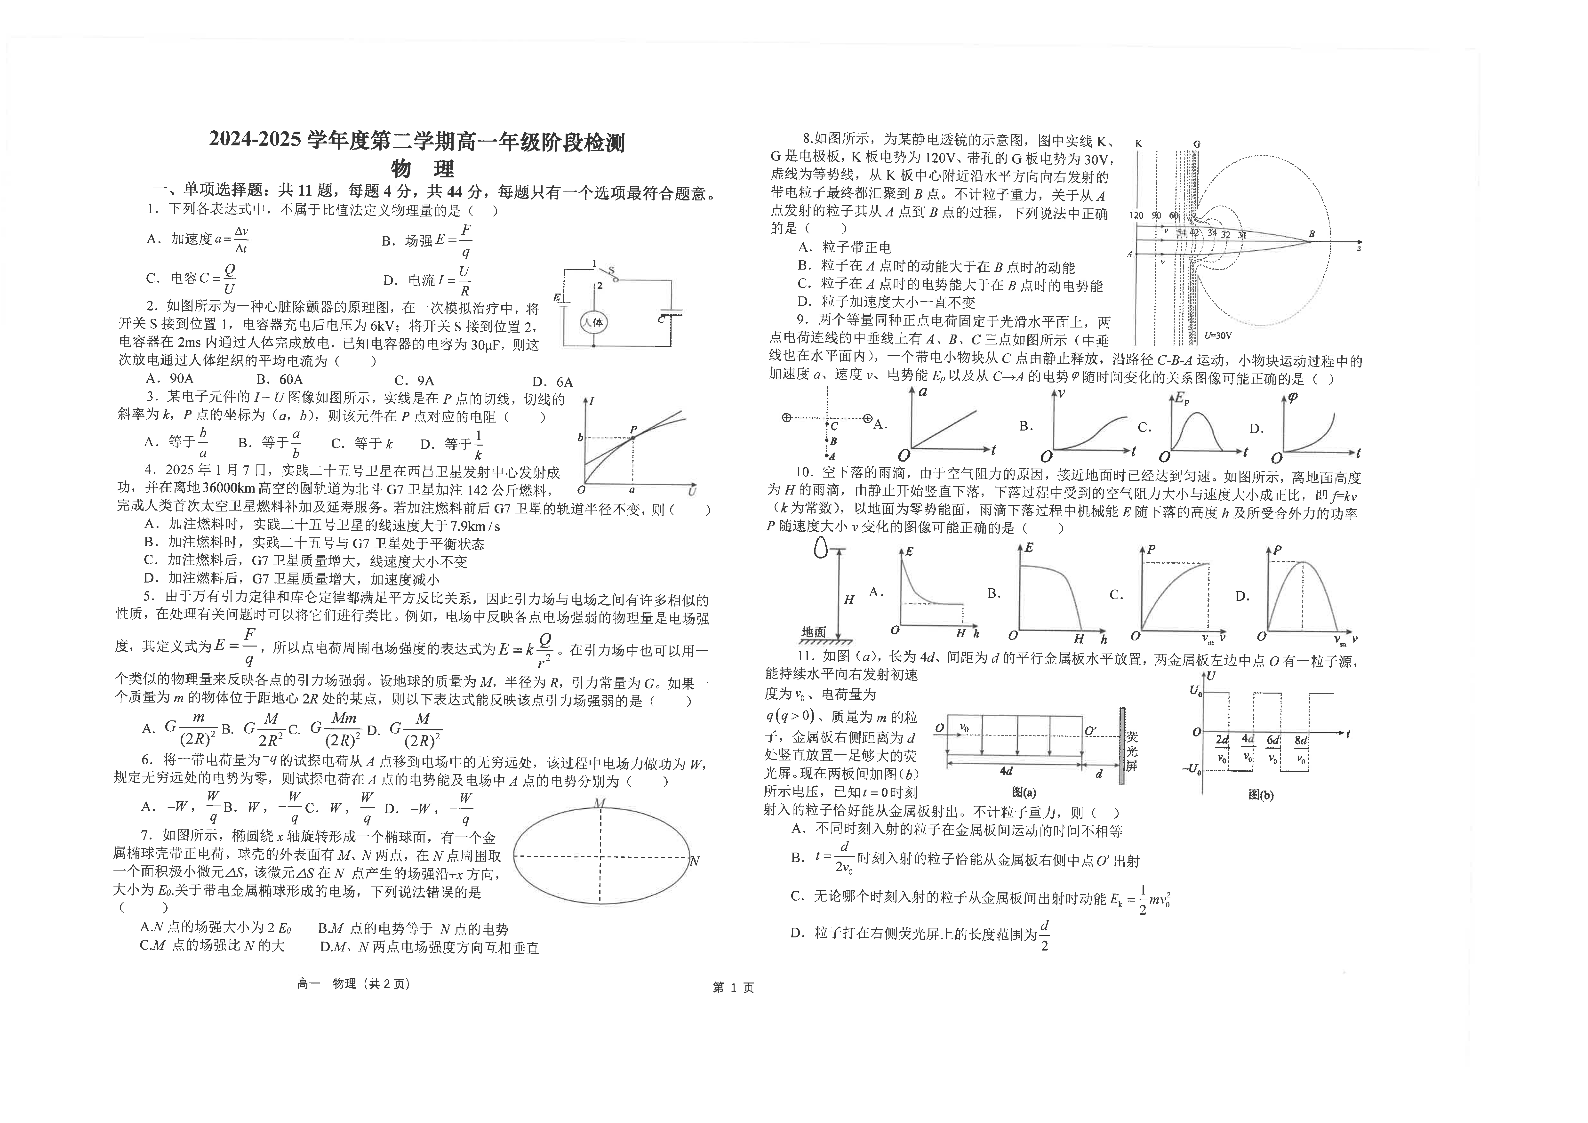 2024-2025 学年度第二学期高一年级阶段检测
物 理
一、单项选择题：共 11 题，每题 4 分，共 44 分，每题只有一个选项最符合题意。
1．下列各表达式中，不属于比值法定义物理量的是（ ）
A．加速度 a=Δv/Δt B．场强 E=F/q
C．电容 C=Q/U D．电流 I=U/R
2．如图所示为一种心脏除颤器的原理图，在一次模拟治疗中，将
开关 S 接到位置 1，电容器充电后电压为 6kV；将开关 S 接到位置 2，
电容器在 2ms 内通过人体完成放电．已知电容器的电容为 30μF，则这
次放电通过人体组织的平均电流为（ ）
A．90A B．60A C．9A D．6A
1 S
2
E
人体
C
3．某电子元件的 I－U 图像如图所示，实线是在 P 点的切线，切线的
斜率为 k，P 点的坐标为（a，b），则该元件在 P 点对应的电阻（ ）
A．等于 b/a B．等于 a/b C．等于 k D．等于 1/k
I
P
b
O a U
4．2025 年 1 月 7 日，实践二十五号卫星在西昌卫星发射中心发射成
功，并在离地 36000km 高空的圆轨道为北斗 G7 卫星加注 142 公斤燃料，
完成人类首次太空卫星燃料补加及延寿服务。若加注燃料前后 G7 卫星的轨道半径不变，则（ ）
A．加注燃料时，实践二十五号卫星的线速度大于 7.9km / s
B．加注燃料时，实践二十五号与 G7 卫星处于平衡状态
C．加注燃料后，G7 卫星质量增大，线速度大小不变
D．加注燃料后，G7 卫星质量增大，加速度减小
5．由于万有引力定律和库仑定律都满足平方反比关系，因此引力场与电场之间有许多相似的
性质，在处理有关问题时可以将它们进行类比。例如，电场中反映各点电场强弱的物理量是电场强
度，其定义式为 E=F/q，所以点电荷周围电场强度的表达式为 E=kQ/r²。在引力场中也可以用一
个类似的物理量来反映各点的引力场强弱。设地球的质量为 M，半径为 R，引力常量为 G。如果一
个质量为 m 的物体位于距地心 2R 处的某点，则以下表达式能反映该点引力场强弱的是（ ）
A. G m/(2R)² B. G M/2R² C. G Mm/(2R)² D. G M/(2R)²
6．将一带电荷量为－q 的试探电荷从 A 点移到电场中的无穷远处，该过程中电场力做功为 W，
规定无穷远处的电势为零，则试探电荷在 A 点的电势能及电场中 A 点的电势分别为（ ）
A．−W，W/q B．W，−W/q C．W，W/q D．−W，−W/q
7．如图所示，椭圆绕 x 轴旋转形成一个椭球面，有一个金
属椭球壳带正电荷，球壳的外表面有 M、N 两点，在 N 点周围取
一个面积极小微元 ΔS，该微元 ΔS 在 N 点产生的场强沿+x 方向，
大小为 E₀.关于带电金属椭球形成的电场，下列说法错误的是
（ ）
A.N 点的场强大小为 2 E₀ B.M 点的电势等于 N 点的电势
C.M 点的场强比 N 的大 D.M、N 两点电场强度方向互相垂直
M
N
高一 物理（共 2 页）
第 1 页
8.如图所示，为某静电透镜的示意图，图中实线 K、
G 是电极板，K 板电势为 120V、带孔的 G 板电势为 30V，
虚线为等势线，从 K 板中心附近沿水平方向向右发射的
带电粒子最终都汇聚到 B 点。不计粒子重力，关于从 A
点发射的粒子其从 A 点到 B 点的过程，下列说法中正确
的是（ ）
A．粒子带正电
B．粒子在 A 点时的动能大于在 B 点时的动能
C．粒子在 A 点时的电势能大于在 B 点时的电势能
D．粒子加速度大小一直不变
K G
120 90 60 54 42 34 32 31
v
A v B z
U=30V
9．两个等量同种正点电荷固定于光滑水平面上，两
点电荷连线的中垂线上有 A、B、C 三点如图所示（中垂
线也在水平面内），一个带电小物块从 C 点由静止释放，沿路径 C-B-A 运动，小物块运动过程中的
加速度 a、速度 v、电势能 Ep 以及从 C→A 的电势 φ 随时间变化的关系图像可能正确的是（ ）
⊕ C ⊕
B
A
A. a O t
B. v O t
C. Ep O t
D. φ O t
10．空下落的雨滴，由于空气阻力的原因，接近地面时已经达到匀速。如图所示，离地面高度
为 H 的雨滴，由静止开始竖直下落，下落过程中受到的空气阻力大小与速度大小成正比，即 f=kv
（k 为常数），以地面为零势能面，雨滴下落过程中机械能 E 随下落的高度 h 及所受合外力的功率
P 随速度大小 v 变化的图像可能正确的是（ ）
H
地面
A. E O H h
B. E O H h
C. P O vₘ v
D. P O vₘ v
11．如图（a），长为 4d、间距为 d 的平行金属板水平放置，两金属板左边中点 O 有一粒子源，
能持续水平向右发射初速
度为 v₀、电荷量为
q(q > 0)、质量为 m 的粒
子，金属板右侧距离为 d
处竖直放置一足够大的荧
光屏。现在两板间加图（b）
所示电压，已知 t = 0 时刻
射入的粒子恰好能从金属板射出。不计粒子重力，则（ ）
O v₀ O′
4d d
荧光屏
图(a)
U
U₀
O 2d/v₀ 4d/v₀ 6d/v₀ 8d/v₀ t
−U₀
图(b)
A．不同时刻入射的粒子在金属板间运动的时间不相等
B．t=d/2v₀ 时刻入射的粒子恰能从金属板右侧中点 O′ 出射
C．无论哪个时刻入射的粒子从金属板间出射时动能 Eₖ=1/2 mv₀²
D．粒子打在右侧荧光屏上的长度范围为 d/2